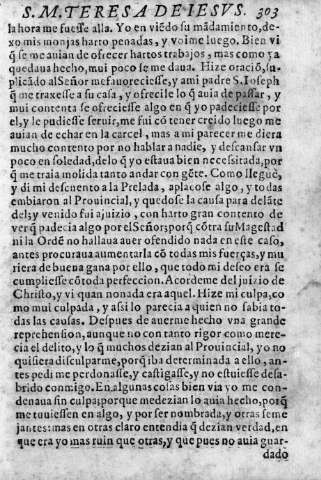 S. M. TERESA DE IESVS. 303
la hora me fuesse alla. Yo en viẽdo su mãdamiento, de-
xo mis monjas harto penadas, y voime luego. Bien vi
q̃ se me auian de ofrecer hartos trabajos, mas como ya
quedaua hecho, mui poco se me daua. Hize oraciõ, su-
plicãdo al Señor me fauoreciesse, y ami padre S. Ioseph
q̃ me traxesse a su casa, y ofrecile lo q̃ auia de passar, y
mui contenta se ofreciesse algo en q̃ yo padeciesse por
el, y le pudiesse seruir, me fui cõ tener creido luego me
auian de echar en la carcel, mas a mi parecer me diera
mucho contento por no hablar a nadie, y descansar vn
poco en soledad, de lo q̃ yo estaua bien necessitada, por
q̃ me traia molida tanto andar con gẽte. Como lleguè,
y di mi descuento a la Prelada, aplacose algo, y todas
embiaron al Prouincial, y quedose la causa para delãte
del; y venido fui ajuizio, con harto gran contento de
ver q̃ padecia algo por el Señor; porq̃ cõtra su Magestad
ni la Ordẽ no hallaua auer ofendido nada en este caso,
antes procuraua aumentarla cõ todas mis fuerças, y mu
riera de buena gana por ello, que todo mi deseo era se
cumpliesse cõ toda perfeccion. Acordeme del juizio de
Christo, y vi quan nonada era aquel. Hize mi culpa, co
mo mui culpada, y assi lo parecia a quien no sabia to-
das las causas. Despues de auerme hecho vna grande
reprehension, aunque no con tanto rigor como mere-
cia el delito, y lo q̃ muchos dezian al Prouincial, yo no
quisiera disculparme, porq̃ iba determinada a ello, an-
tes pedi me perdonasse, y castigasse, y no estuiesse desa-
brido conmigo. En algunas cosas bien via yo me con-
denaua sin culpa; porque me dezian lo auia hecho, porq̃
me tuuiessen en algo, y por ser nombrada, y otras seme
jantes: mas en otras claro entendia q̃ dezian verdad, en
que era yo mas ruin que otras, y que pues no auia guar-
dado